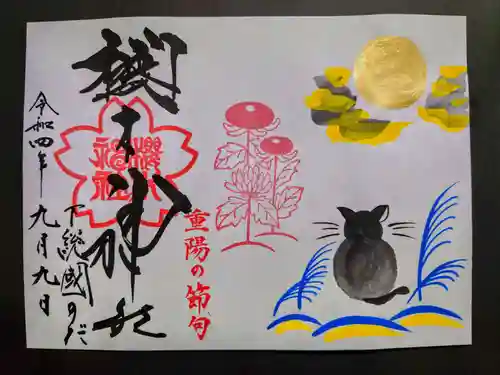 重陽の節句
櫻木神社
下総國のだ
令和四年九月九日